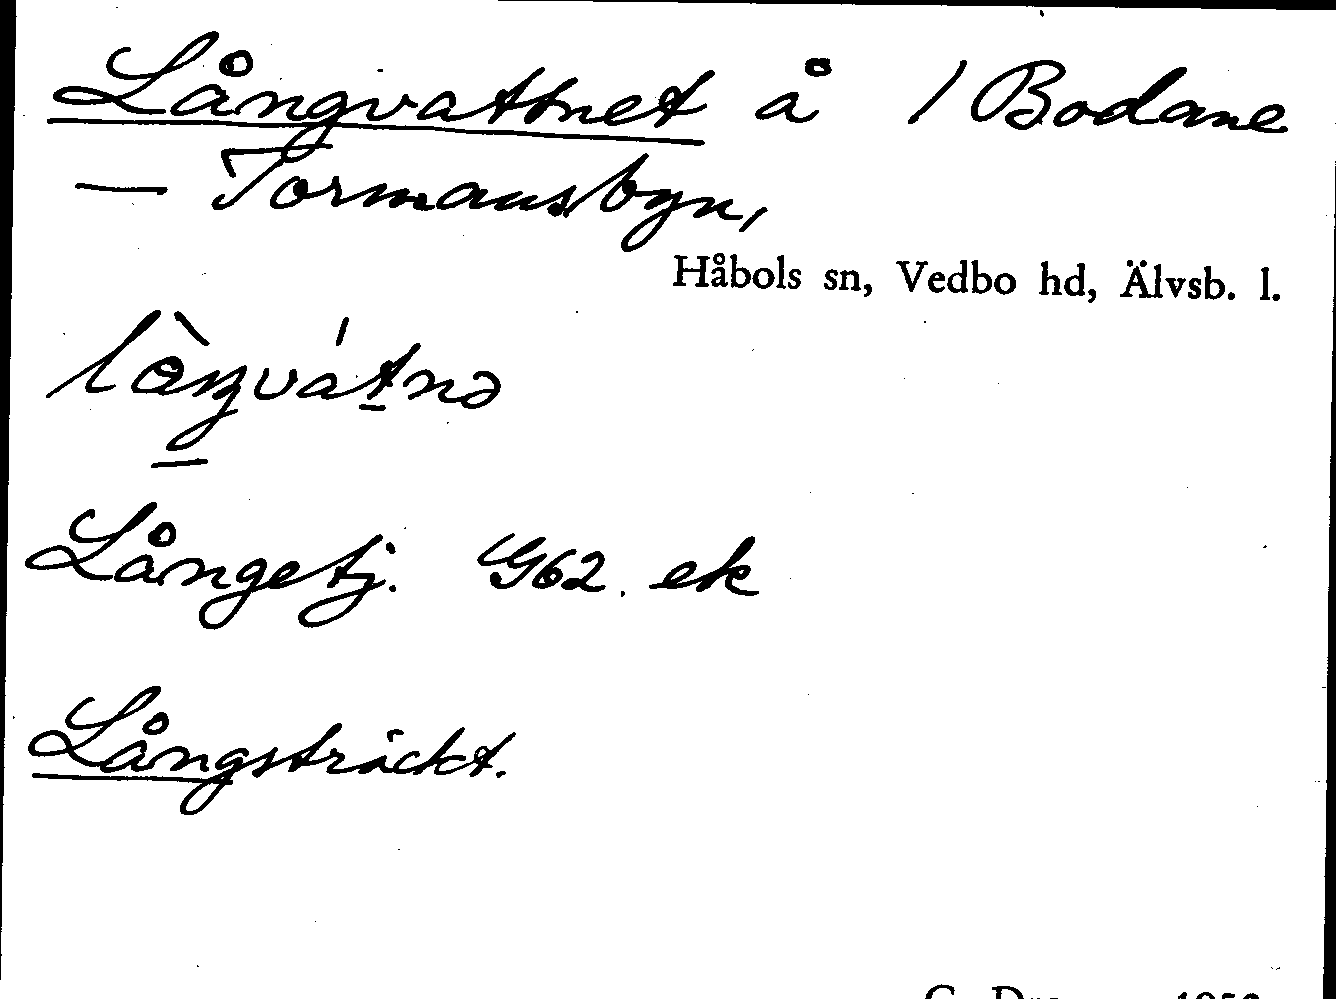 Långvattnet å / Bodane
— Tormansbyn,
Håbols sn, Vedbo hd, Älvsb. l.
lòŋvátnə
Långetj. G62. ek
Långsträckt.